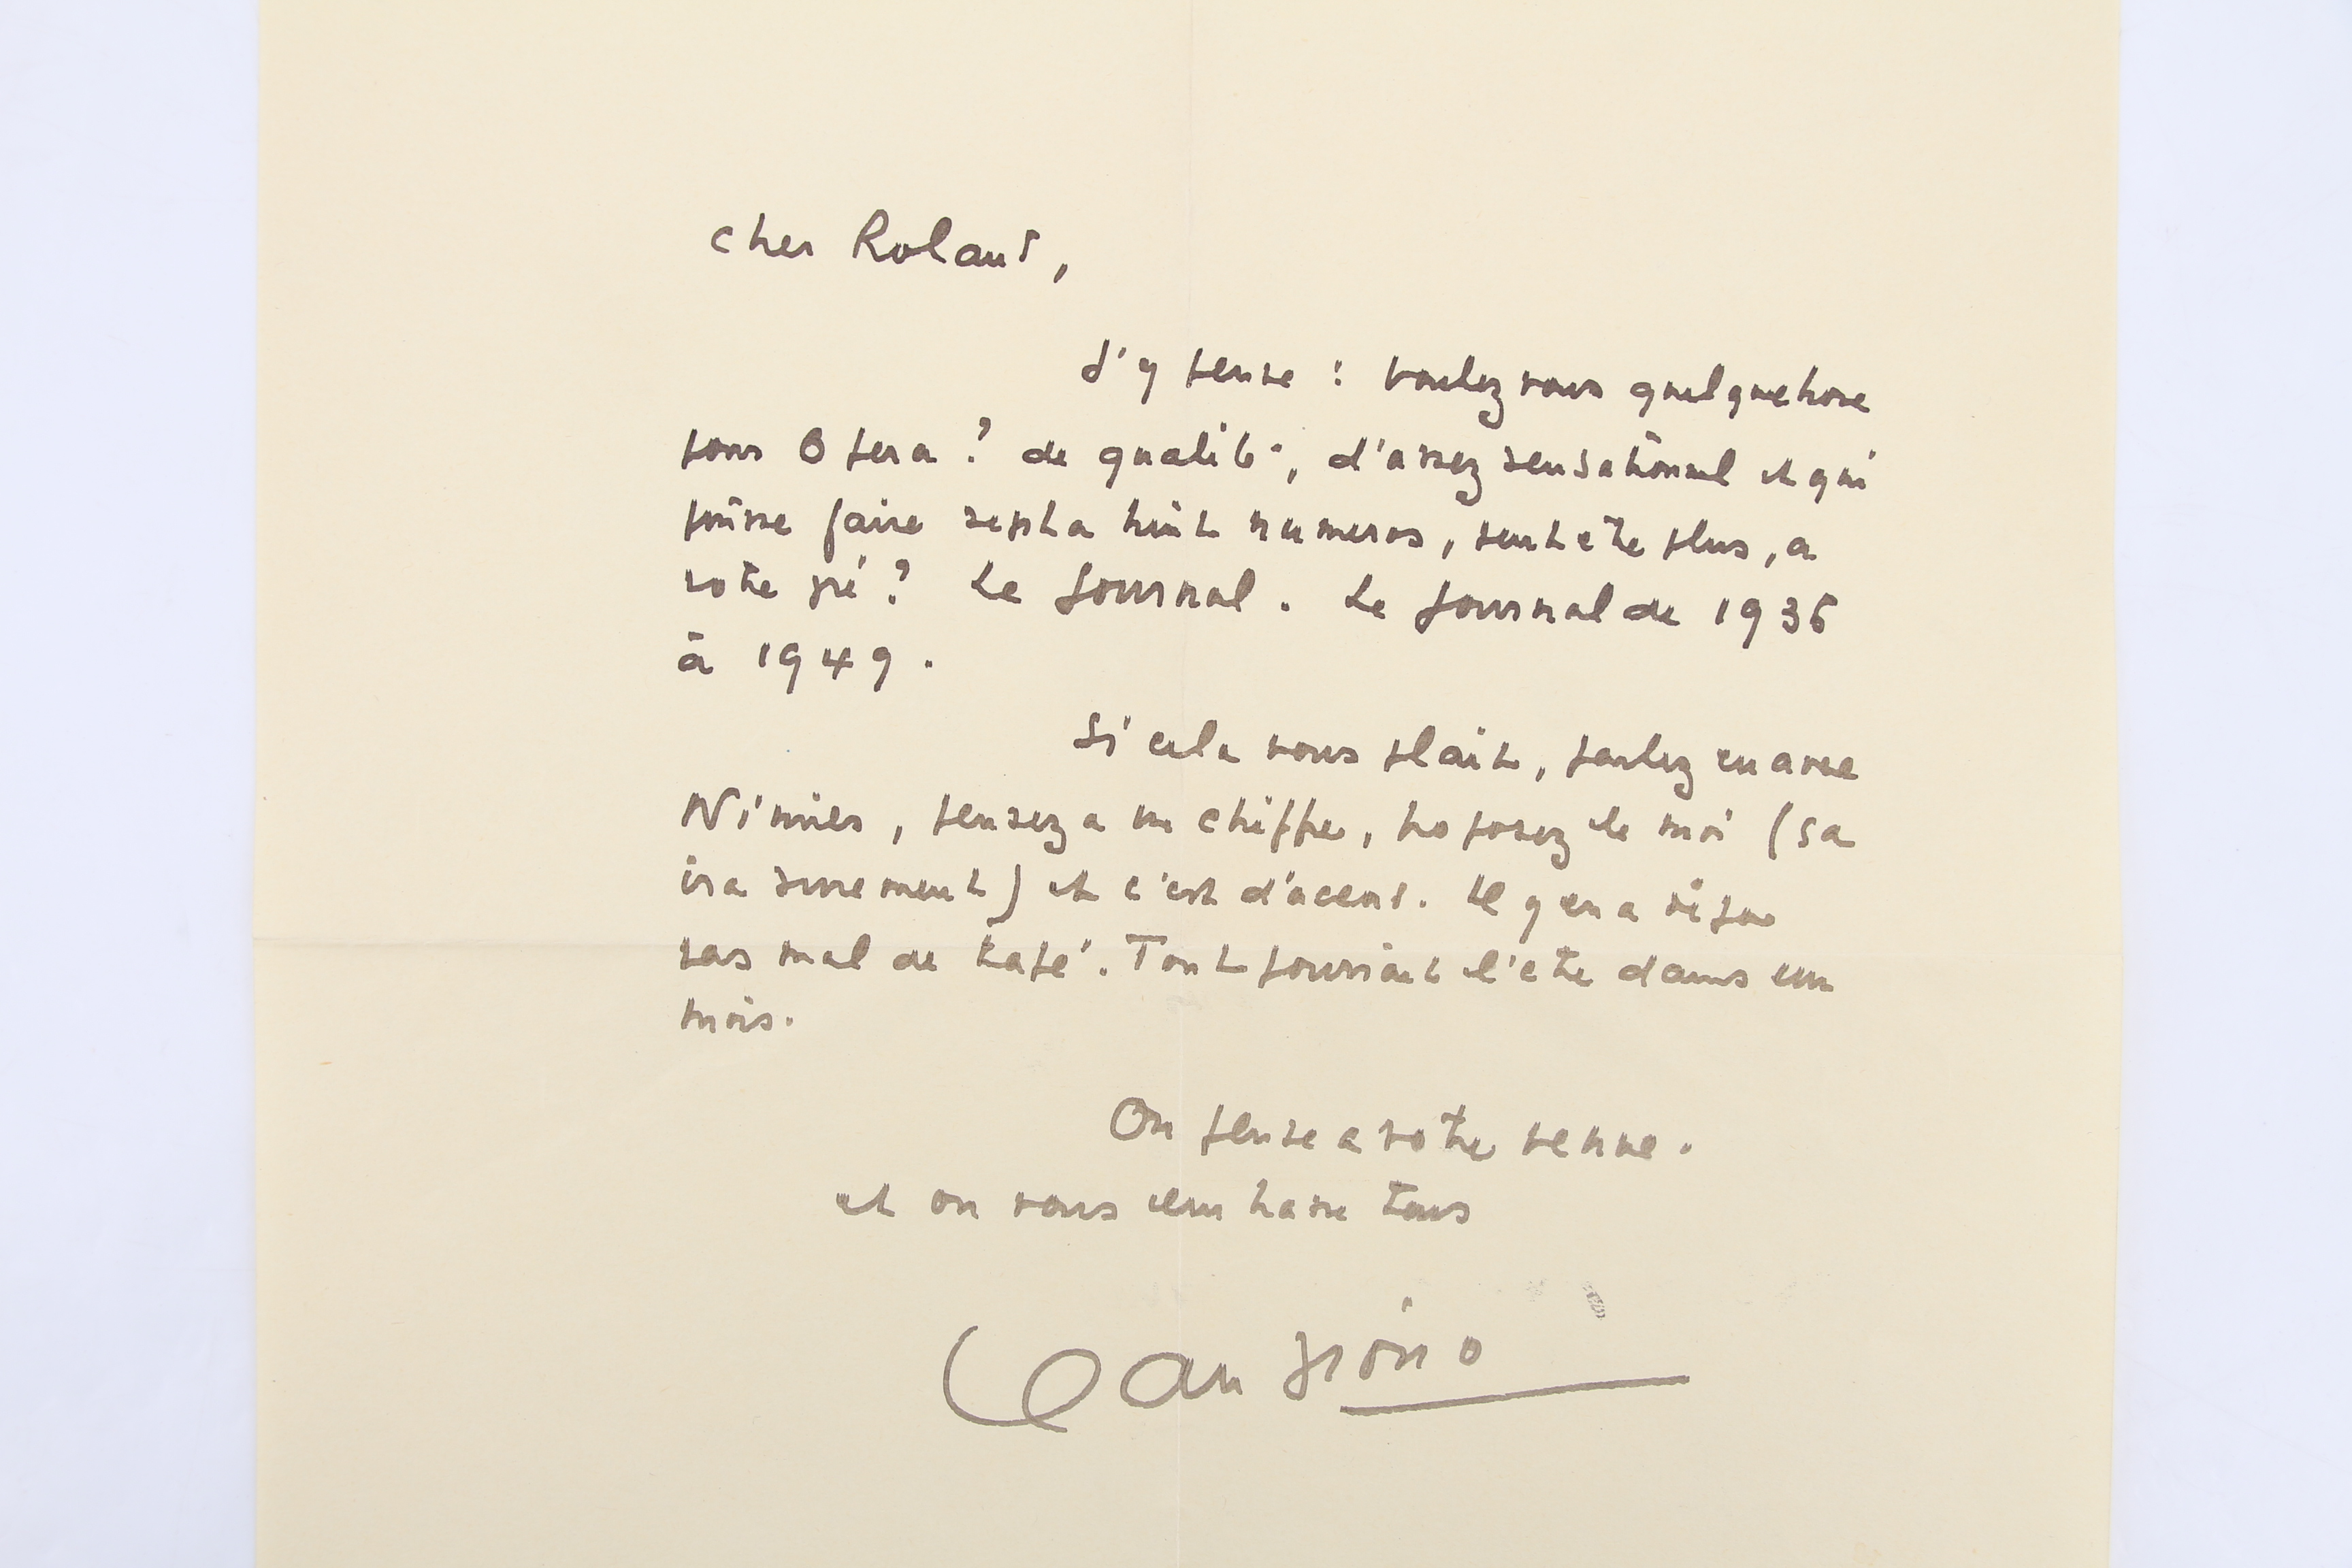 Cher Roland,
J'y pense : voulez vous quelquechose
pour Opera ? de qualité, d'assez sensationnel et qui
puisse faire sept a huit numeros, peut etre plus, a
votre gré ? Le Journal. Le Journal de 1936
à 1949.
Si cela vous plait, parlez en avec
Nimier, pensez a un chiffre, proposez le moi (sa
ira surement) et c'est d'accord. Il y en a déjà
pas mal de tapé. Tout pourrait l'etre dans un
mois.
On pense a votre venue.
et on vous embrasse tous
Jean Giono